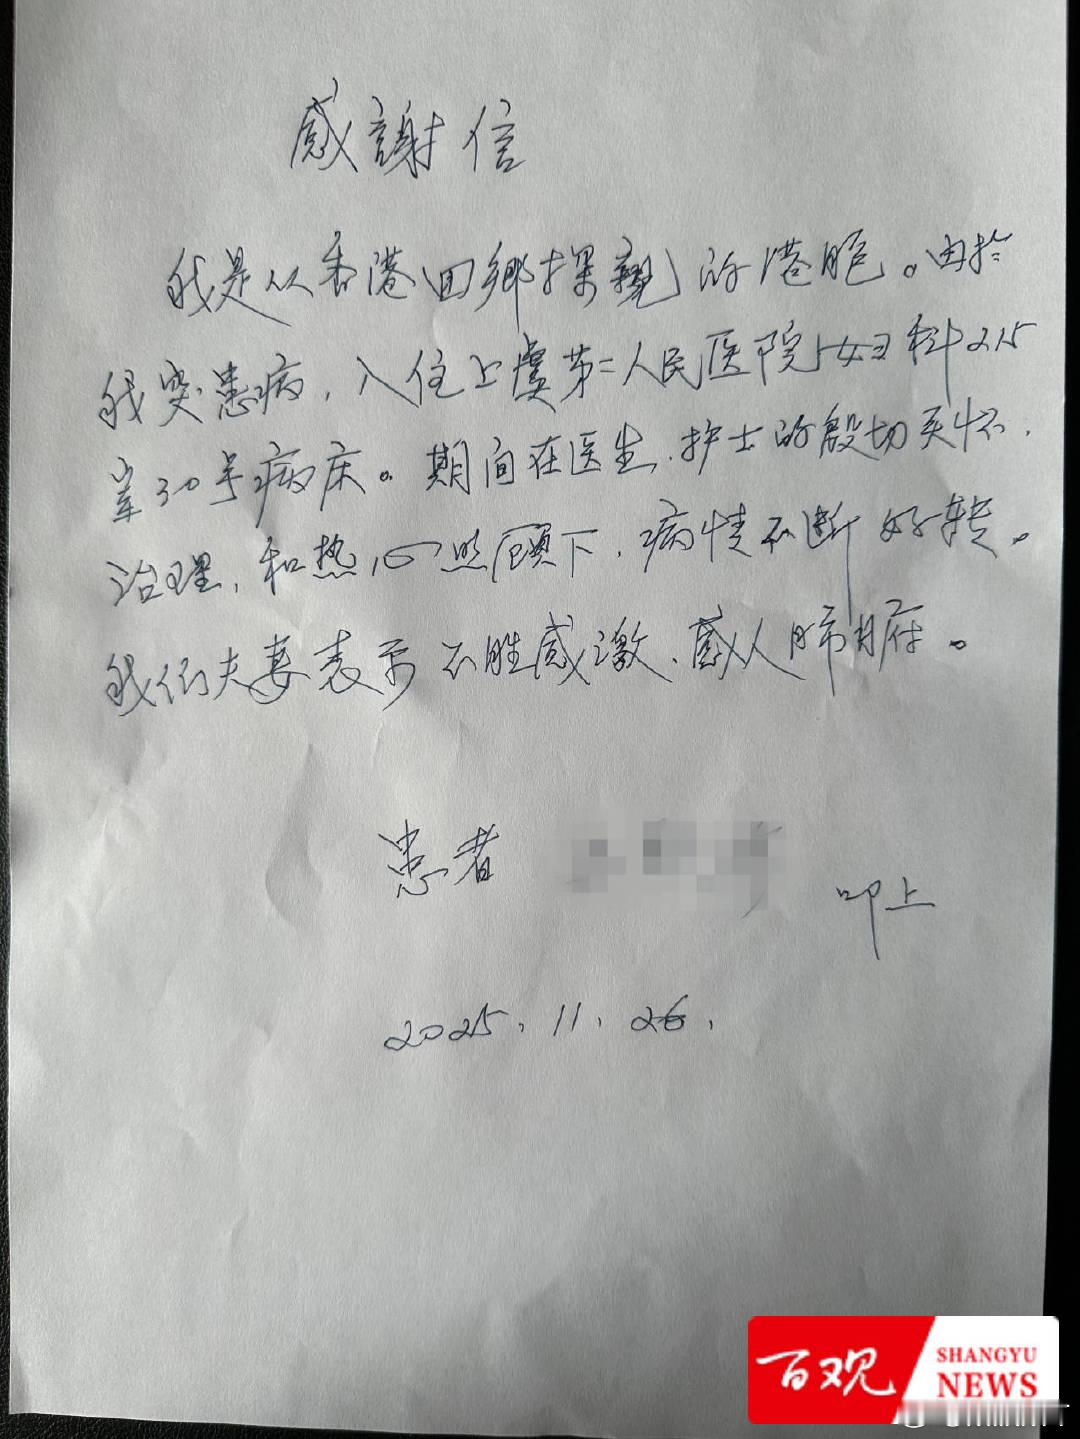 感謝信
我是从香港回鄉探親的港胞。由於
我突患病，入住上虞第二人民医院妇科215
室30号病床。期间在医生、护士的殷切关怀、
治理，和热心照顾下，病情不断好转。
我们夫妻表示不胜感激、感从肺腑。
患者
叩上
2025.11.26.
百观
SHANGYU
NEWS